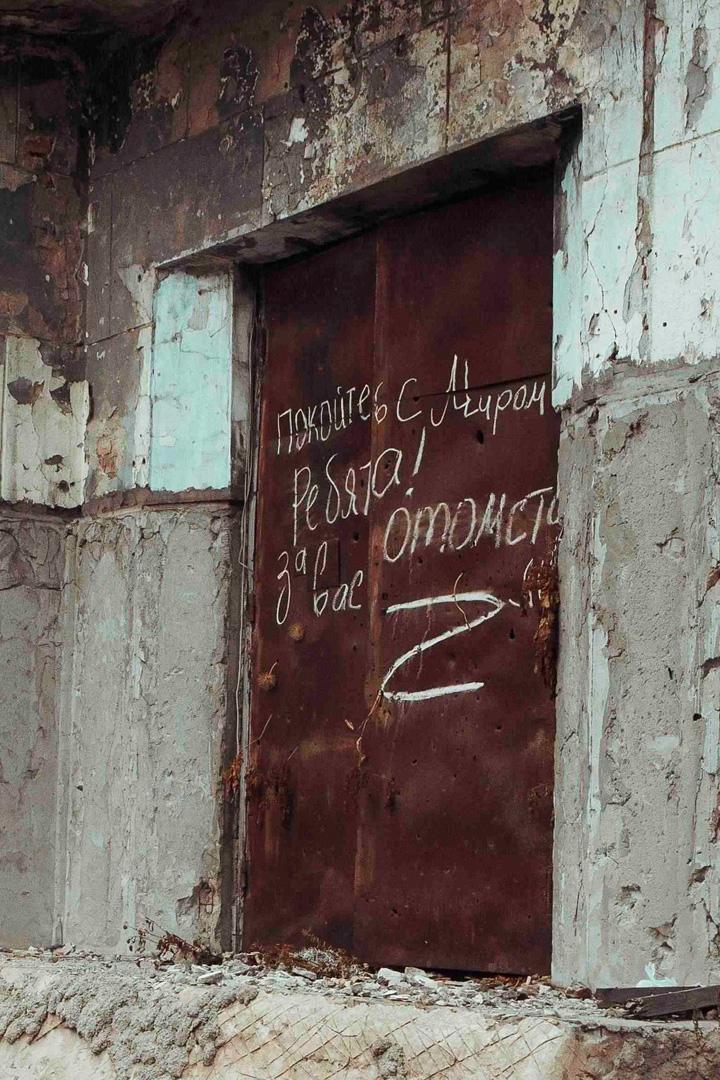 Покойтесь С Миром
Ребята!
отомст
за вас
Z